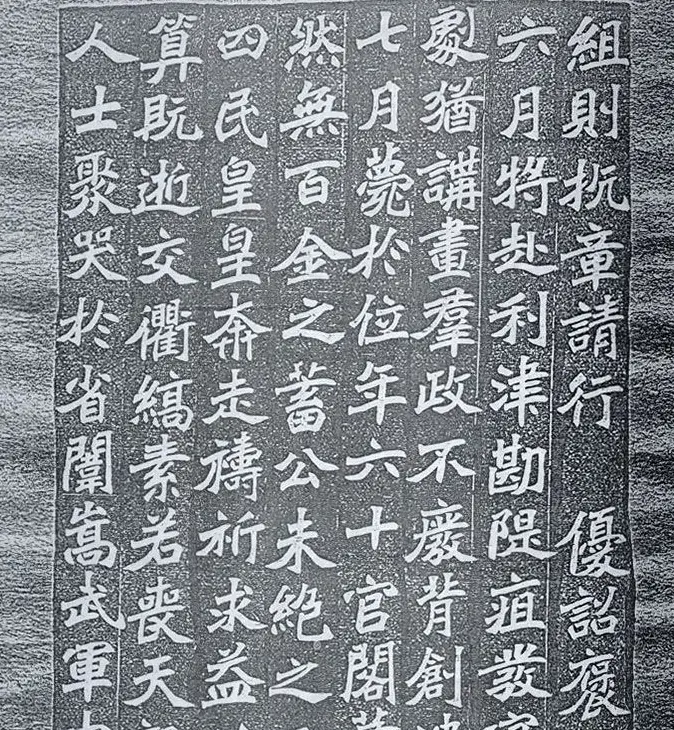 組則抗章請行 優詔褒
六月將赴利津勘隄疽發
劇猶講畫羣政不廢背創
七月薨於位年六十官閣
然無百金之蓄公未絕之
四民皇皇奔走禱祈求益
算既逝交衢縞素若喪天
人士聚哭於省闈嵩武軍